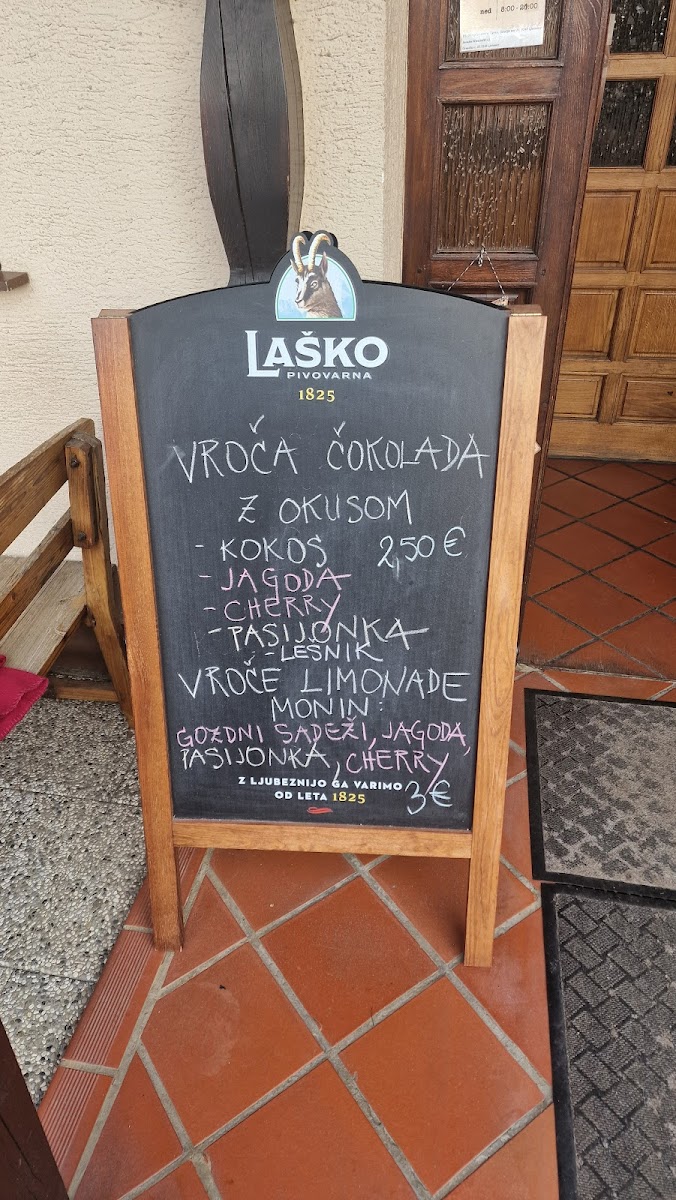 ned 8:00 - 20:00
LAŠKO
PIVOVARNA
1825
VROČA ČOKOLADA
Z OKUSOM
- KOKOS 2,50 €
- JAGODA
- CHERRY
- PASIJONKA
- LEŠNIK
VROČE LIMONADE
MONIN:
GOZDNI SADEŽI, JAGODA,
PASIJONKA, CHERRY
Z LJUBEZNIJO GA VARIMO
OD LETA 1825
3€